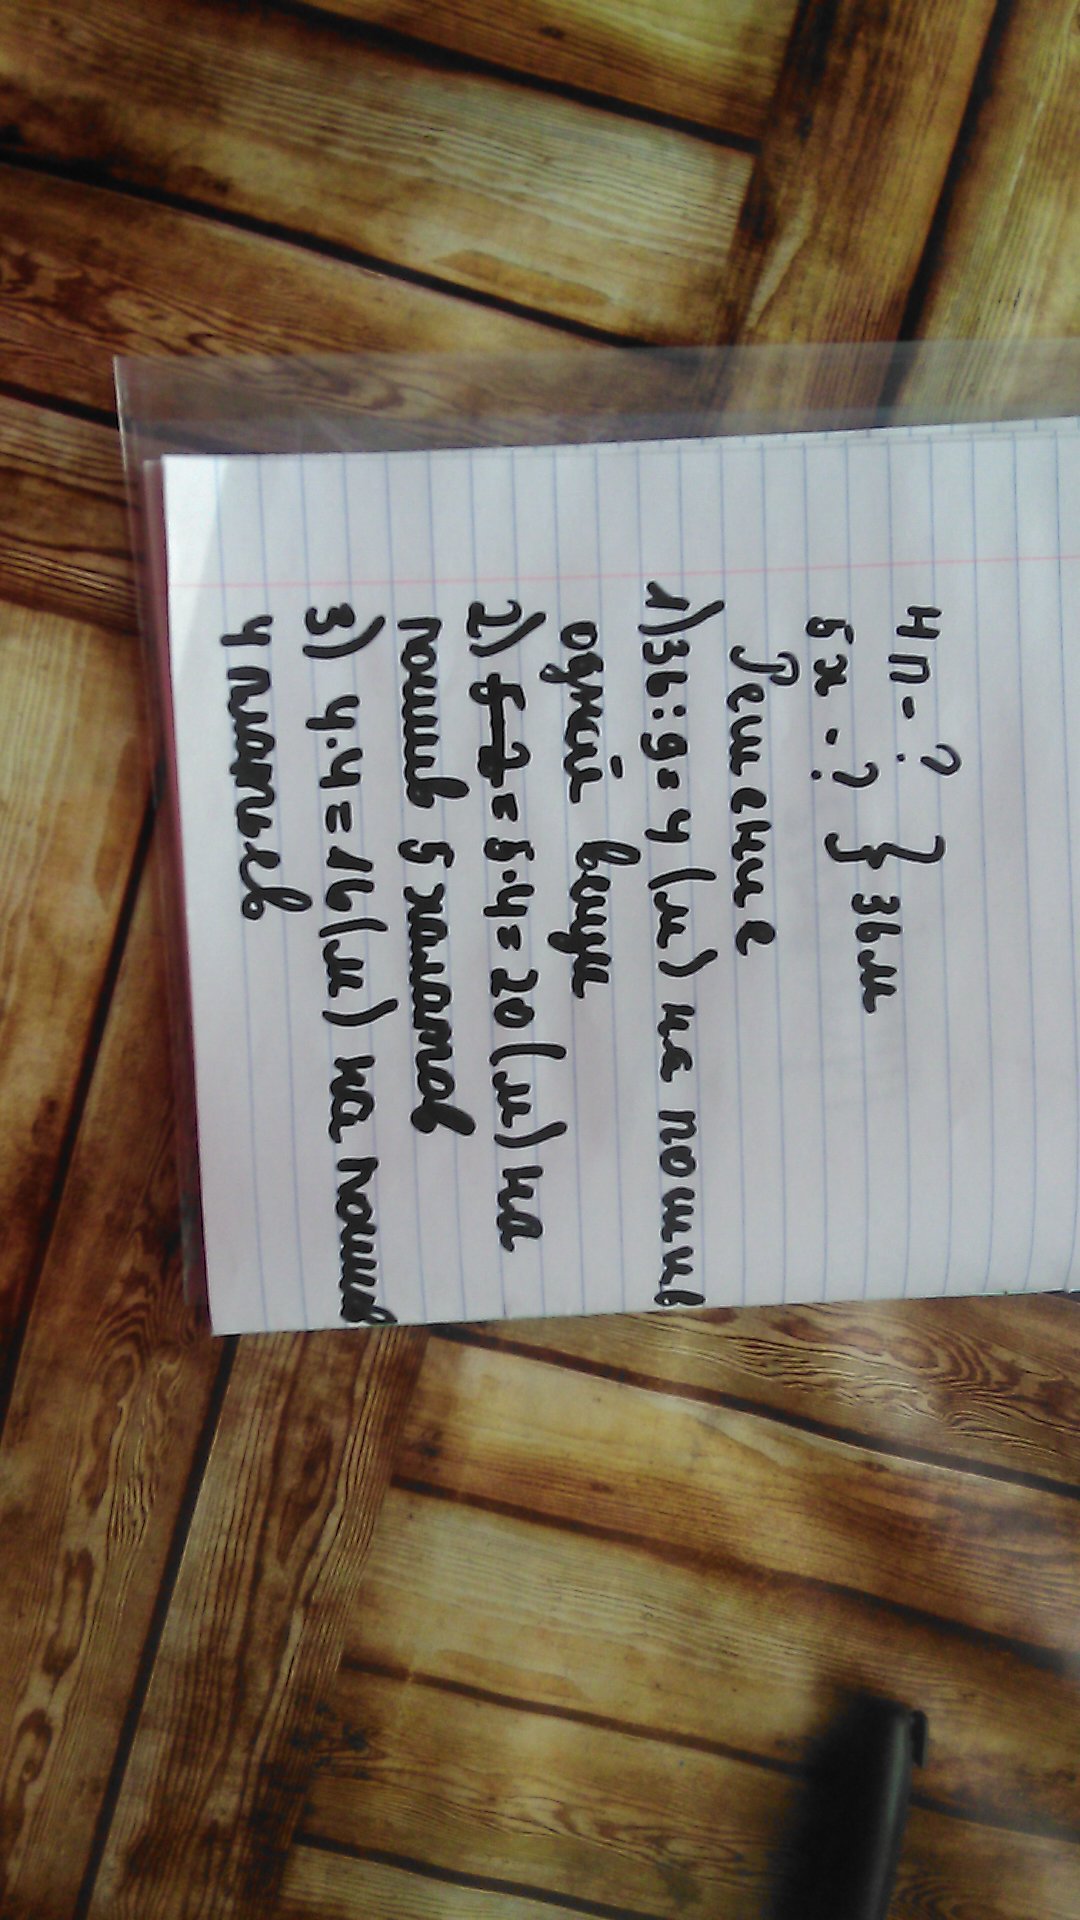 4 п - ?
5 х - ? } 36 м
Решение
1) 36 : 9 = 4 (м) на пошив
одной вещи
2) 5 - 2 = 5 · 4 = 20 (м) на
пошив 5 халатов
3) 4 · 4 = 16 (м) на пошив
4 платьев